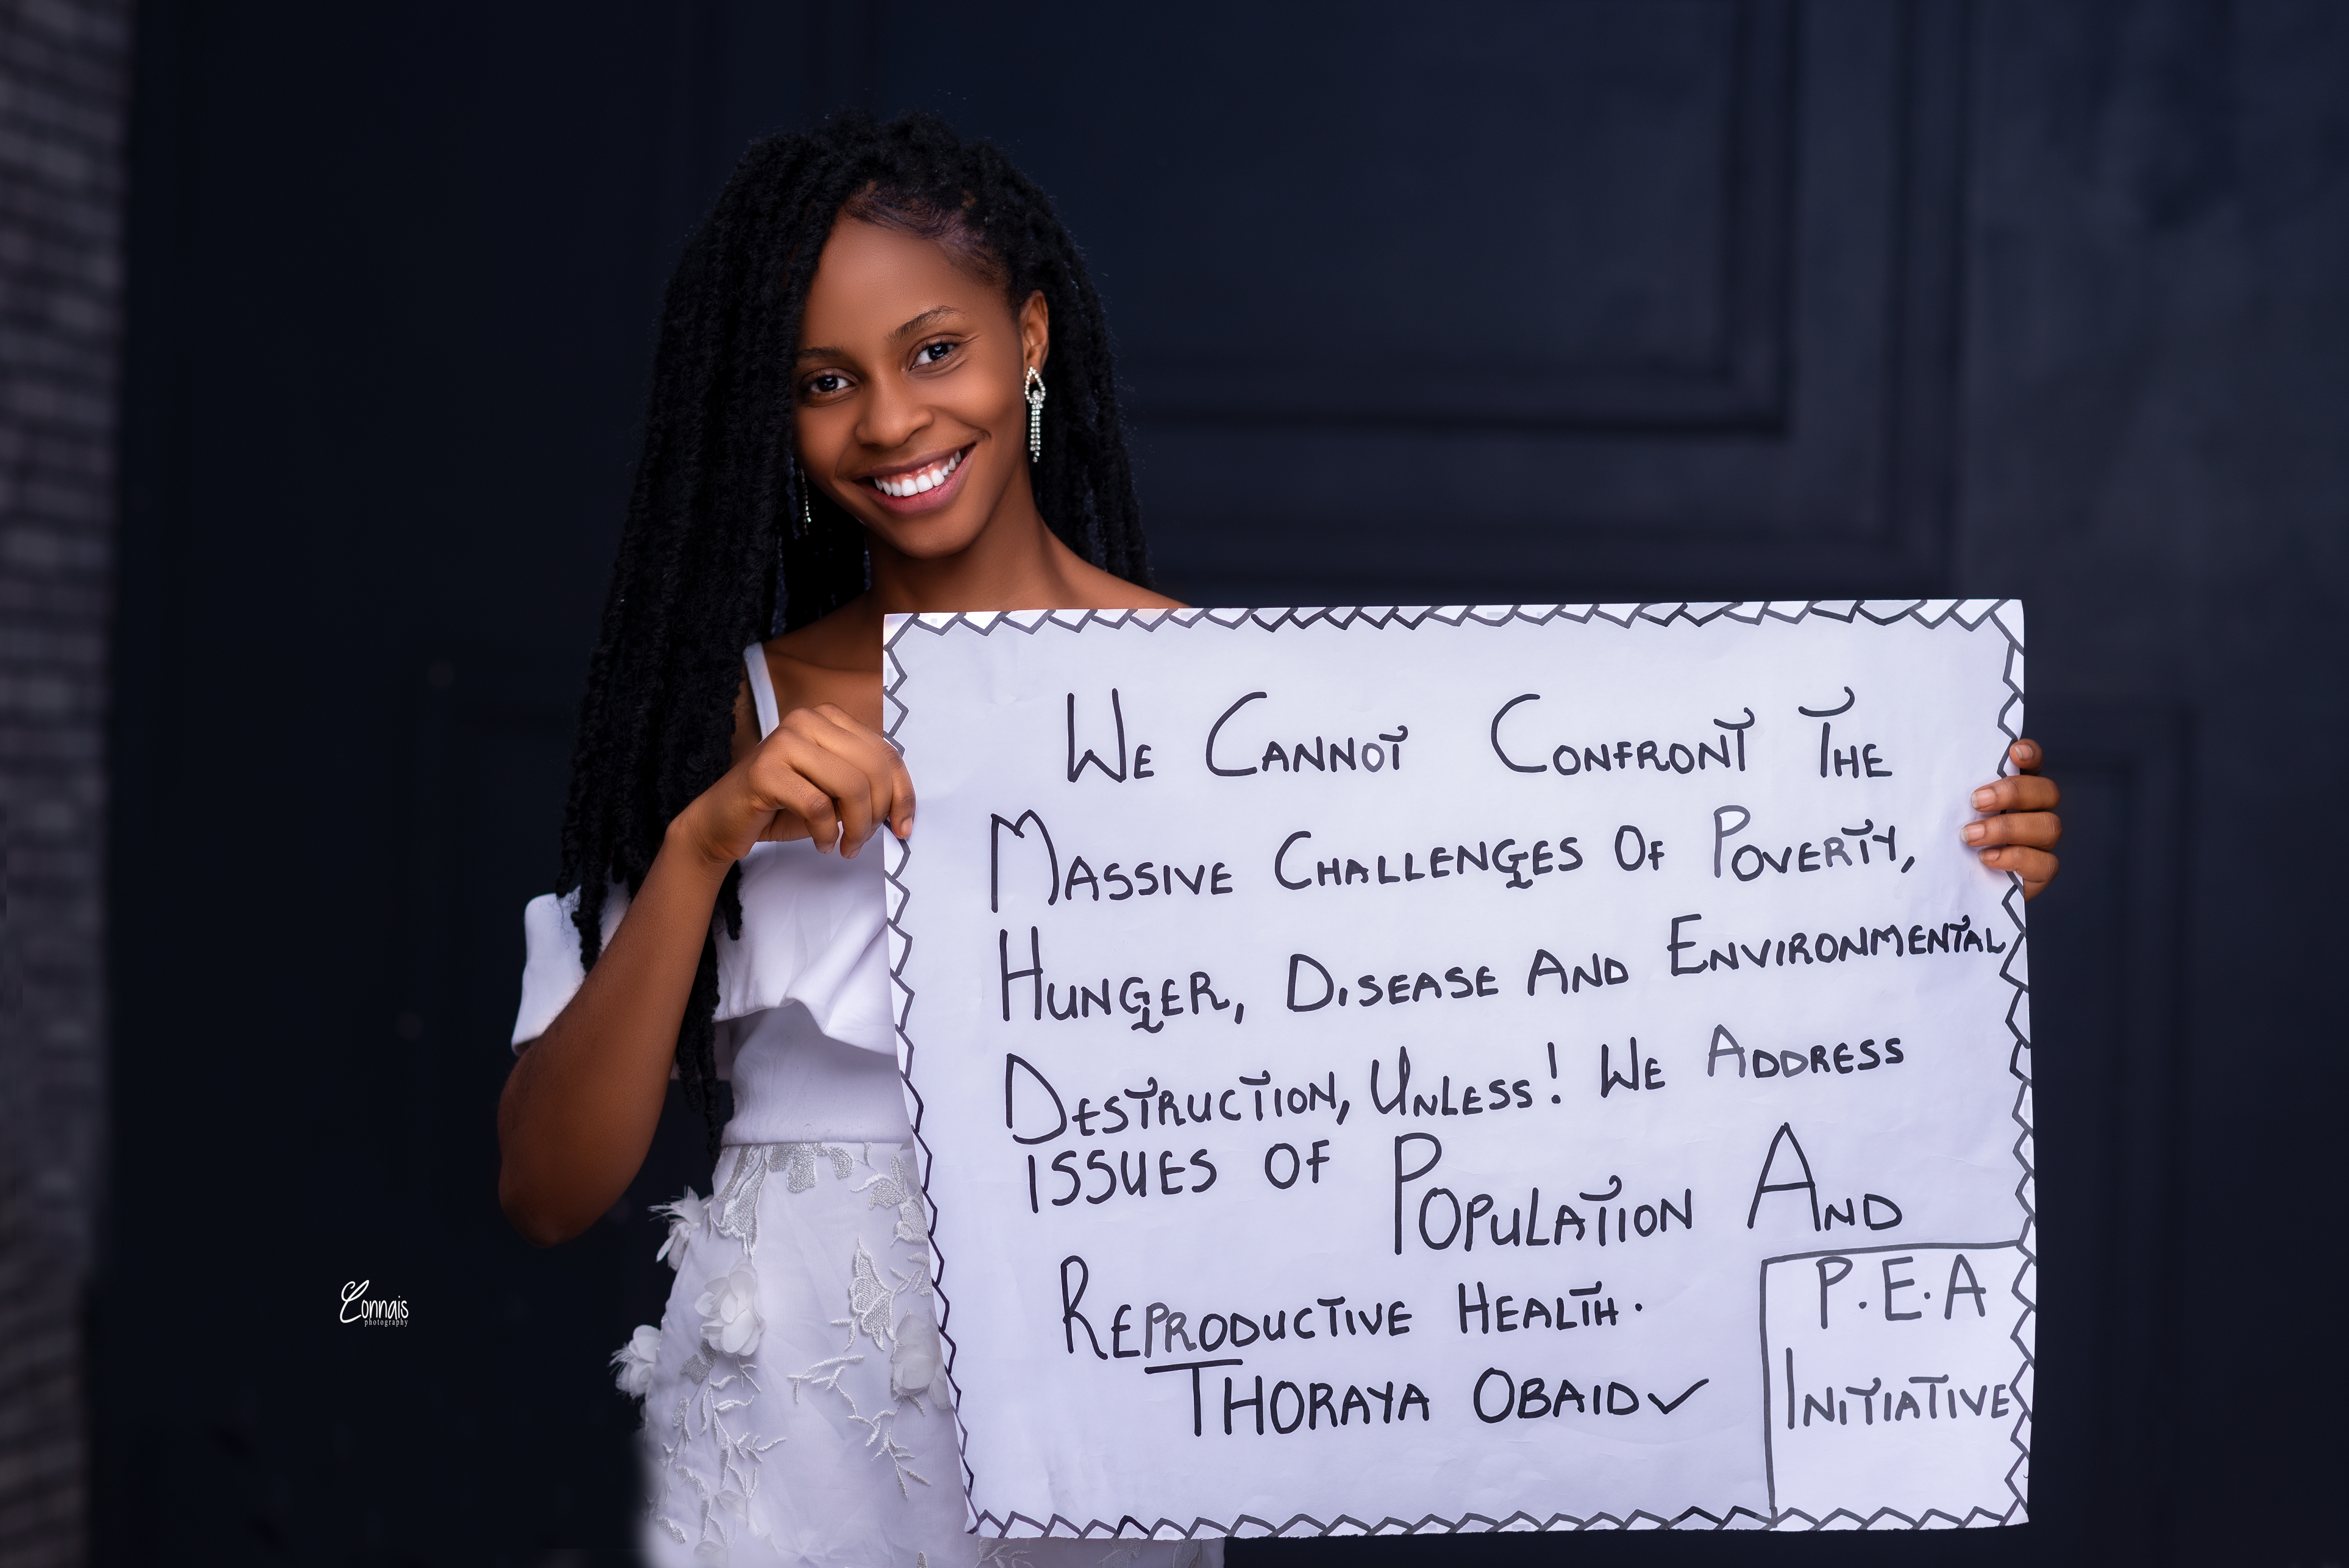 We Cannot Confront The
Massive Challenges Of Poverty,
Hunger, Disease And Environmental
Destruction, Unless! We Address
issues of Population And
Reproductive Health.
Thoraya Obaid
P.E.A
Initiative
Connais
photography